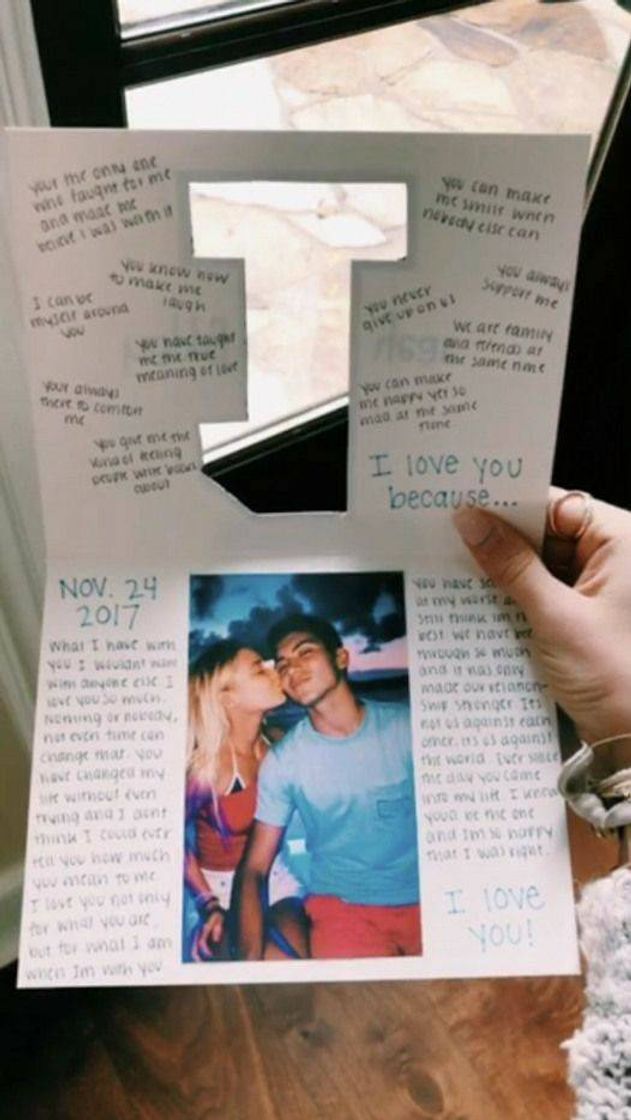 your the only one
who faught for me
and made me
believe I was worth it
You know how
to make me
laugh
I can be
myself around
you
You have taught
me the true
meaning of love
Your always
there to comfort
me
You give me the
kind of feeling
people write books
about
You can make
me smile when
nobody else can
You always
support me
You never
give up on us
We are family
and friends at
the same time
You can make
me happy yet so
mad at the same
time
I love you
because...
NOV. 24
2017
What I have with
you I wouldnt want
with anyone else. I
love you so much.
Nothing or nobody,
not even time can
change that. You
have changed my
life without even
trying and I dont
think I could ever
tell you how much
you mean to me
I love you not only
for what you are,
but for what I am
when Im with you
You have
at my worst
still think im
best. We have
through so much
and it has only
made our relation-
ship stronger. Its
not us against each
other, its us against
the world. Ever since
the day you came
into my life I knew
youd be the one
and Im so happy
that I was right.
I love
you!